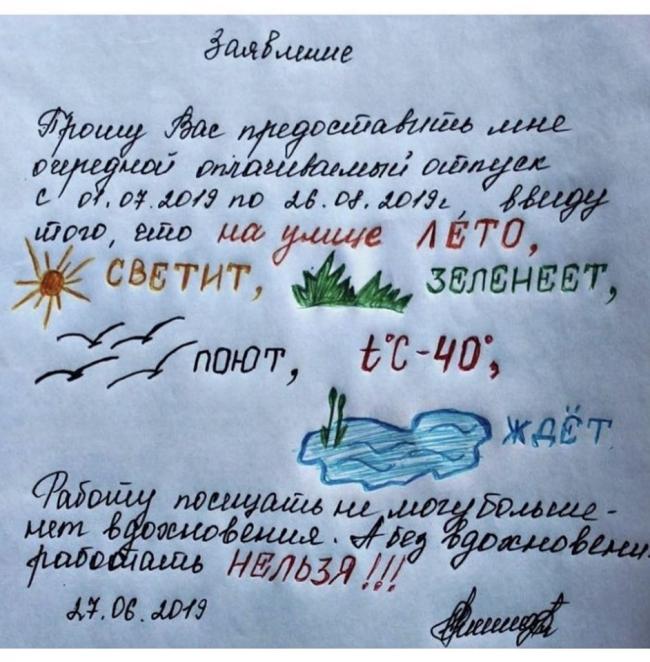 Заявление
Прошу Вас предоставить мне
очередной оплачиваемый отпуск
с 01.07.2019 по 26.08.2019г, ввиду
того, что на улице ЛЕ́ТО,
СВЕТИТ, ЗЕЛЕНЕЕТ,
ПОЮТ, t°C-40°,
ЖДЁТ.
Работу посещать не могу больше-
нет вдохновения. А без вдохновени
работать НЕЛЬЗЯ!!!
27.06.2019